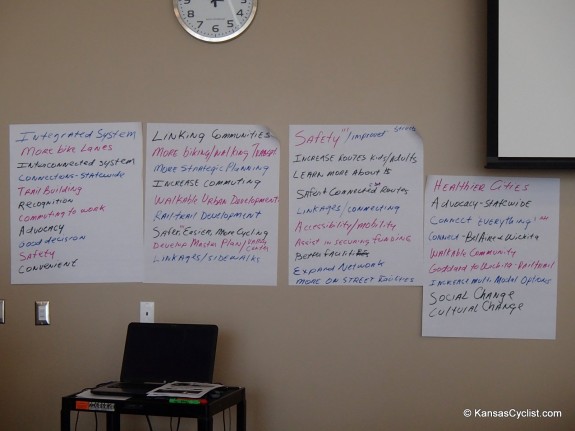 Integrated System
More bike Lanes
Interconnected system
Connections-Statewide
Trail Building
Recognition
Commuting to work
Advocacy
Good decision
Safety
Convenient
Linking Communities
More biking/walking Transpt.
More Strategic Planning
Increase Commuting
Walkable Urban Development
Railtrail Development
Safer, Easier, More Cycling
Develop Master Plan/
Linkages/sidewalks
Safety"'/improved streets
Increase Routes Kids/Adults
Learn More About is
Safer & Connected Routes
Linkages/connecting
Accessibility/Mobility
Assist in securing funding
Better facilities
Expand Network
More on Street Routes
Healthier Cities
Advocacy-statewide
Connect Everything!
Connect-BelAire & Wichita
Walkable Community
Goddard to Wichita-Railtrail
Increase multi Modal Options
Social Change
Cultural Change
© KansasCyclist.com